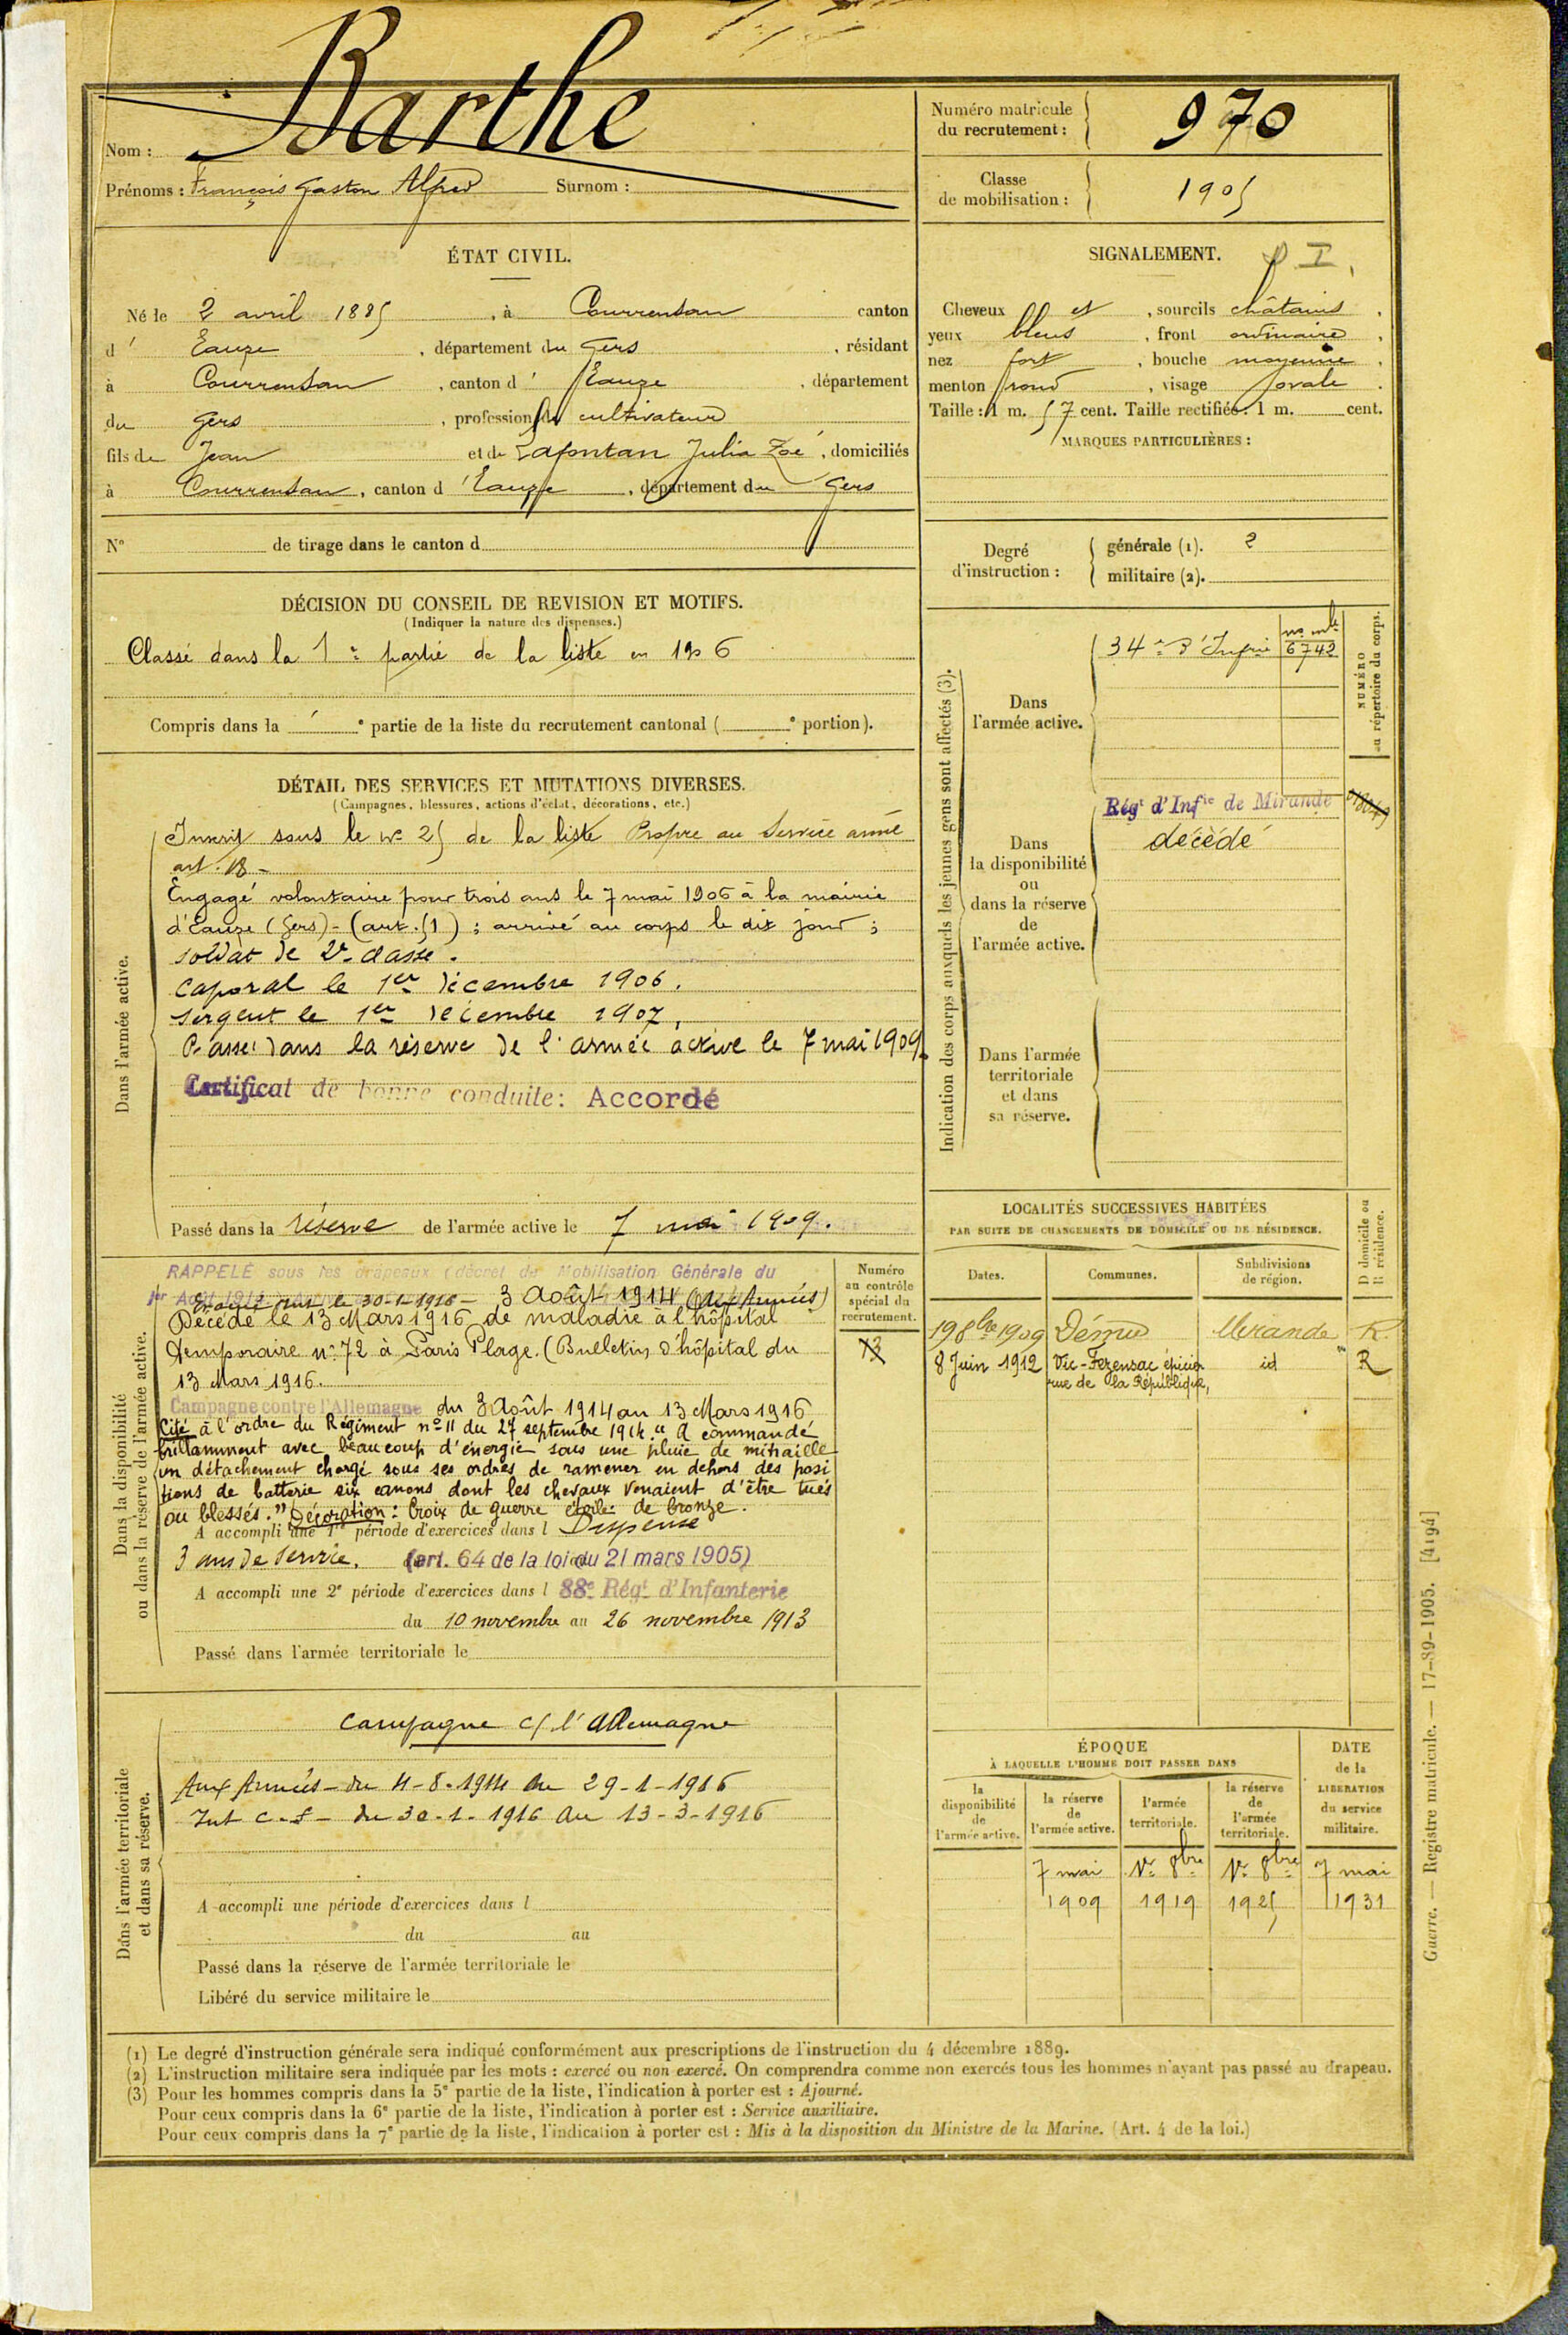 Nom : Barthe
Prénoms : François Gaston Alfred Surnom :
Numéro matricule
du recrutement : 970
Classe
de mobilisation : 1905
ÉTAT CIVIL.
Né le 2 avril 1885, à Courrensan canton
d' Eauze, département du Gers, résidant
à Courrensan, canton d' Eauze, département
du Gers, profession de cultivateur
fils de Jean et de Lafontan Julia Zoé, domiciliés
à Courrensan, canton d' Eauze, département du Gers
N° de tirage dans le canton d
SIGNALEMENT.
Cheveux et, sourcils châtains,
yeux bleus, front ordinaire,
nez fort, bouche moyenne,
menton rond, visage ovale.
Taille : 1 m. 57 cent. Taille rectifiée : 1 m. cent.
MARQUES PARTICULIÈRES :
Degré
d'instruction :
générale (1). 2
militaire (2).
DÉCISION DU CONSEIL DE REVISION ET MOTIFS.
(Indiquer la nature des dispenses.)
Classé dans la 1e partie de la liste en 1906
Compris dans la e partie de la liste du recrutement cantonal ( e portion).
DÉTAIL DES SERVICES ET MUTATIONS DIVERSES.
(Campagnes, blessures, actions d'éclat, décorations, etc.)
Dans l'armée active.
Inscrit sous le n° 25 de la liste Propre au Service armé
art. 18 -
Engagé volontaire pour trois ans le 7 mai 1906 à la mairie
d'Eauze (Gers) - (art. 51) ; arrivé au corps le dit jour ;
soldat de 2e classe.
Caporal le 1er décembre 1906.
Sergent le 1er décembre 1907,
Passé dans la réserve de l'armée active le 7 mai 1909.
Certificat de bonne conduite : Accordé
Passé dans la réserve de l'armée active le 7 mai 1909.
Indication des corps auxquels les jeunes gens sont affectés (3).
NUMÉRO
au répertoire du corps.
Dans
l'armée active.
34e d'Infrie n° mle 6742
Dans
la disponibilité
ou
dans la réserve
de
l'armée active.
Régt d'Infie de Mirande
décédé
Dans l'armée
territoriale
et dans
sa réserve.
Dans la disponibilité
ou dans la réserve de l'armée active.
RAPPELÉ sous les drapeaux (décret de Mobilisation Générale du
1er Août 1914 3 Août 1914 (aux Armées)
Evacué int le 30-1-1916 -
Décédé le 13 Mars 1916 de maladie à l'hôpital
temporaire n° 72 à Paris Plage. (Bulletin d'hôpital du
13 Mars 1916.
Campagne contre l'Allemagne du 3 Août 1914 au 13 Mars 1916
Cité à l'ordre du Régiment n° 11 du 27 septembre 1914. "A commandé
brillamment avec beaucoup d'énergie sous une pluie de mitraille
un détachement chargé sous ses ordres de ramener en dehors des posi
tions de batterie six canons dont les chevaux venaient d'être tués
ou blessés." Décoration : Croix de guerre étoile de bronze.
A accompli une 1re période d'exercices dans l Dispense
3 ans de service. (art. 64 de la loi du 21 mars 1905)
A accompli une 2e période d'exercices dans l 88e Régt d'Infanterie
du 10 novembre au 26 novembre 1913
Passé dans l'armée territoriale le
Numéro
au contrôle
spécial du
recrutement.
13
LOCALITÉS SUCCESSIVES HABITÉES
PAR SUITE DE CHANGEMENTS DE DOMICILE OU DE RÉSIDENCE.
D domicile ou
R résidence.
Dates. Communes. Subdivisions
de région.
19 8bre 1909 Dému Mirande R.
8 Juin 1912 Vic-Fezensac épicier id R
rue de la République,
Dans l'armée territoriale
et dans sa réserve.
Campagne c/ l'Allemagne
Aux Armées - du 4-8-1914 au 29-1-1916
Int C.S - du 30-1-1916 au 13-3-1916
A accompli une période d'exercices dans l
du au
Passé dans la réserve de l'armée territoriale le
Libéré du service militaire le
ÉPOQUE
À LAQUELLE L'HOMME DOIT PASSER DANS
la
disponibilité
de
l'armée active.
la réserve
de
l'armée active.
l'armée
territoriale.
la réserve
de
l'armée
territoriale.
DATE
de la
LIBÉRATION
du service
militaire.
7 mai 1er 8bre 1er 8bre 7 mai
1909 1919 1925 1931
(1) Le degré d'instruction générale sera indiqué conformément aux prescriptions de l'instruction du 4 décembre 1889.
(2) L'instruction militaire sera indiquée par les mots : exercé ou non exercé. On comprendra comme non exercés tous les hommes n'ayant pas passé au drapeau.
(3) Pour les hommes compris dans la 5e partie de la liste, l'indication à porter est : Ajourné.
Pour ceux compris dans la 6e partie de la liste, l'indication à porter est : Service auxiliaire.
Pour ceux compris dans la 7e partie de la liste, l'indication à porter est : Mis à la disposition du Ministre de la Marine. (Art. 4 de la loi.)
Guerre. — Registre matricule. — 17-89-1905. [4194]